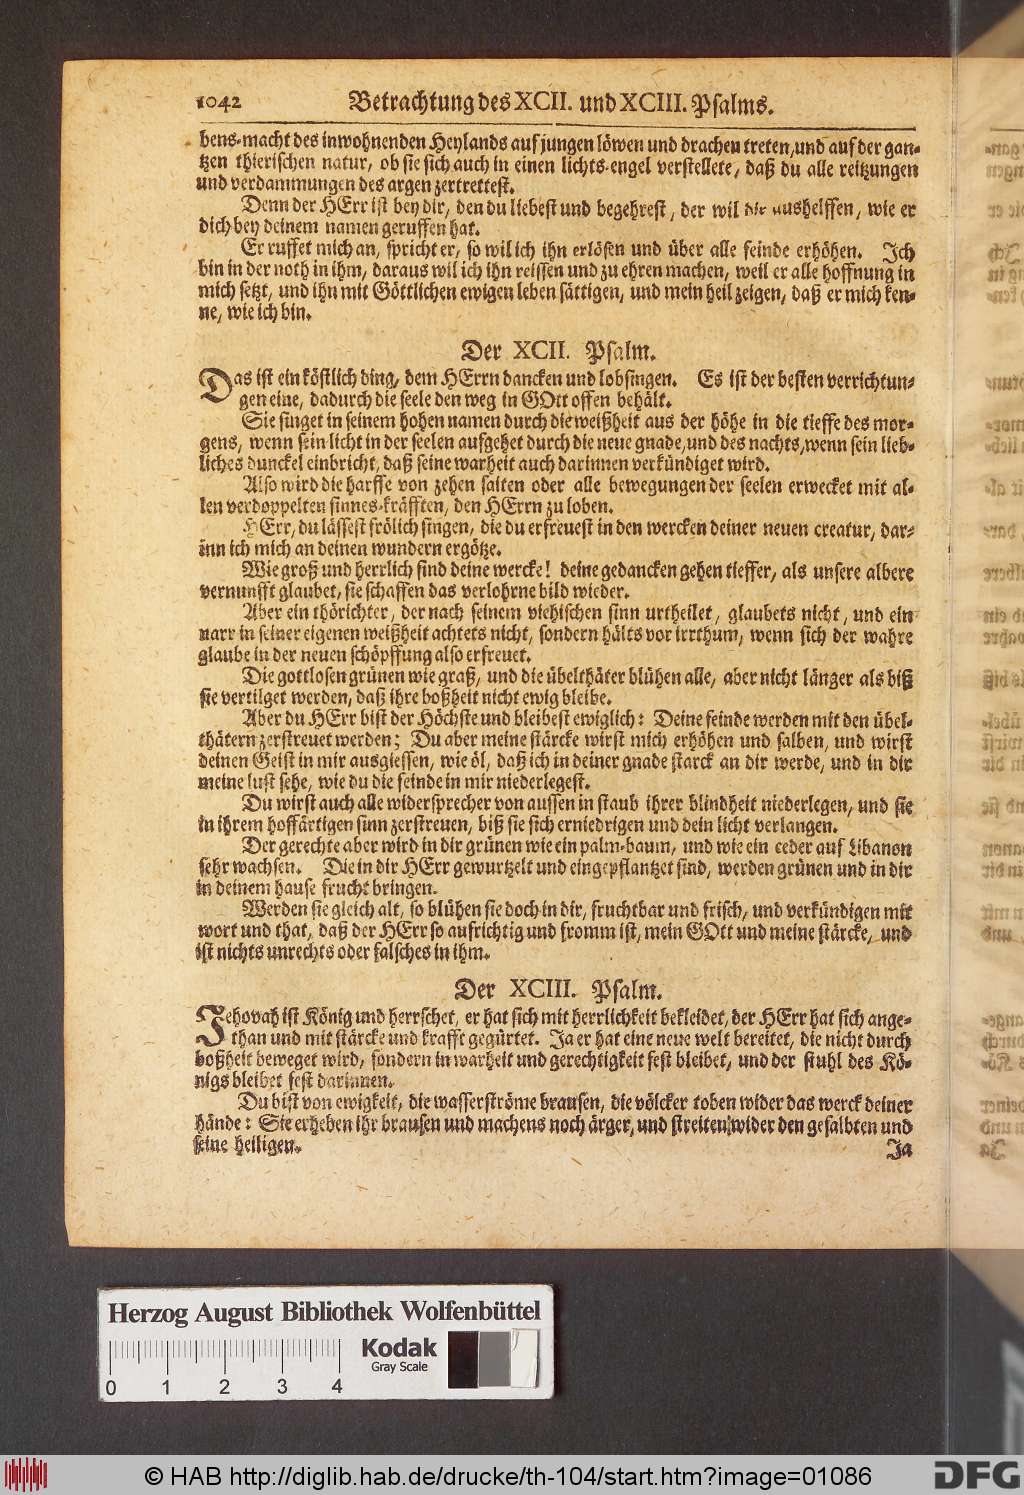 1042 Betrachtung des XCII. und XCIII. Psalms.
bens-macht des inwohnenden Heylands auf jungen löwen und drachen treten, und auf der gan-
tzen thierischen natur, ob sie sich auch in einen lichts-engel verstellete, daß du alle reitzungen
und verdammungen des argen zertrettest.
Denn der HErr ist bey dir, den du liebest und begehrest, der wil dir aushelffen, wie er
dich bey deinem namen geruffen hat.
Er ruffet mich an, spricht er, so wil ich ihn erlösen und über alle feinde erhöhen. Ich
bin in der noth in ihm, daraus wil ich ihn reissen und zu ehren machen, weil er alle hoffnung in
mich setzt, und ihn mit Göttlichen ewigen leben sättigen, und mein heil zeigen, daß er mich ken-
ne, wie ich bin.
Der XCII. Psalm.
Das ist ein köstlich ding, dem HErrn dancken und lobsingen. Es ist der besten verrichtun-
gen eine, dadurch die seele den weg in GOtt offen behält.
Sie singet in seinem hohen namen durch die weißheit aus der höhe in die tieffe des mor-
gens, wenn sein licht in der seelen aufgehet durch die neue gnade, und des nachts, wenn sein lieb-
liches dunckel einbricht, daß seine warheit auch darinnen verkündiget wird.
Also wird die harffe von zehen saiten oder alle bewegungen der seelen erwecket mit al-
len verdoppelten sinnes-kräfften, den HErrn zu loben.
HErr, du lässest frölich singen, die du erfreuest in den wercken deiner neuen creatur, dar-
inn ich mich an deinen wundern ergötze.
Wie groß und herrlich sind deine wercke! deine gedancken gehen tieffer, als unsere albere
vernunfft glaubet, sie schaffen das verlohrne bild wieder.
Aber ein thörichter, der nach seinem viehischen sinn urtheilet, glaubets nicht, und ein
narr in seiner eigenen weißheit achtets nicht, sondern hälts vor irrthum, wenn sich der wahre
glaube in der neuen schöpffung also erfreuet.
Die gottlosen grünen wie graß, und die übelthäter blühen alle, aber nicht länger als biß
sie vertilget werden, daß ihre boßheit nicht ewig bleibe.
Aber du HErr bist der Höchste und bleibest ewiglich: Deine feinde werden mit den übel-
thätern zerstreuet werden; Du aber meine stärcke wirst mich erhöhen und salben, und wirst
deinen Geist in mir ausgiessen, wie öl, daß ich in deiner gnade starck an dir werde, und in dir
meine lust sehe, wie du die feinde in mir niederlegest.
Du wirst auch alle widersprecher von aussen in staub ihrer blindheit niederlegen, und sie
in ihrem hoffärtigen sinn zerstreuen, biß sie sich erniedrigen und dein licht verlangen.
Der gerechte aber wird in dir grünen wie ein palm-baum, und wie ein ceder auf Libanon
sehr wachsen. Die in dir HErr gewurtzelt und eingepflantzet sind, werden grünen und in dir
in deinem hause frucht bringen.
Werden sie gleich alt, so blühen sie doch in dir, fruchtbar und frisch, und verkündigen mit
wort und that, daß der HErr so aufrichtig und fromm ist, mein GOtt und meine stärcke, und
ist nichts unrechts oder falsches in ihm.
Der XCIII. Psalm.
Jehovah ist König und herrschet, er hat sich mit herrlichkeit bekleidet, der HErr hat sich ange-
than und mit stärcke und krafft gegürtet. Ja er hat eine neue welt bereitet, die nicht durch
boßheit beweget wird, sondern in warheit und gerechtigkeit fest bleibet, und der stuhl des Kö-
nigs bleibet fest darinnen.
Du bist von ewigkeit, die wasserströme brausen, die völcker toben wider das werck deiner
hände: Sie erheben ihr brausen und machens noch ärger, und streiten wider den gesalbten und
seine heiligen.
Ja
Herzog August Bibliothek Wolfenbüttel
Kodak
Gray Scale
0 1 2 3 4
© HAB http://diglib.hab.de/drucke/th-104/start.htm?image=01086
DFG